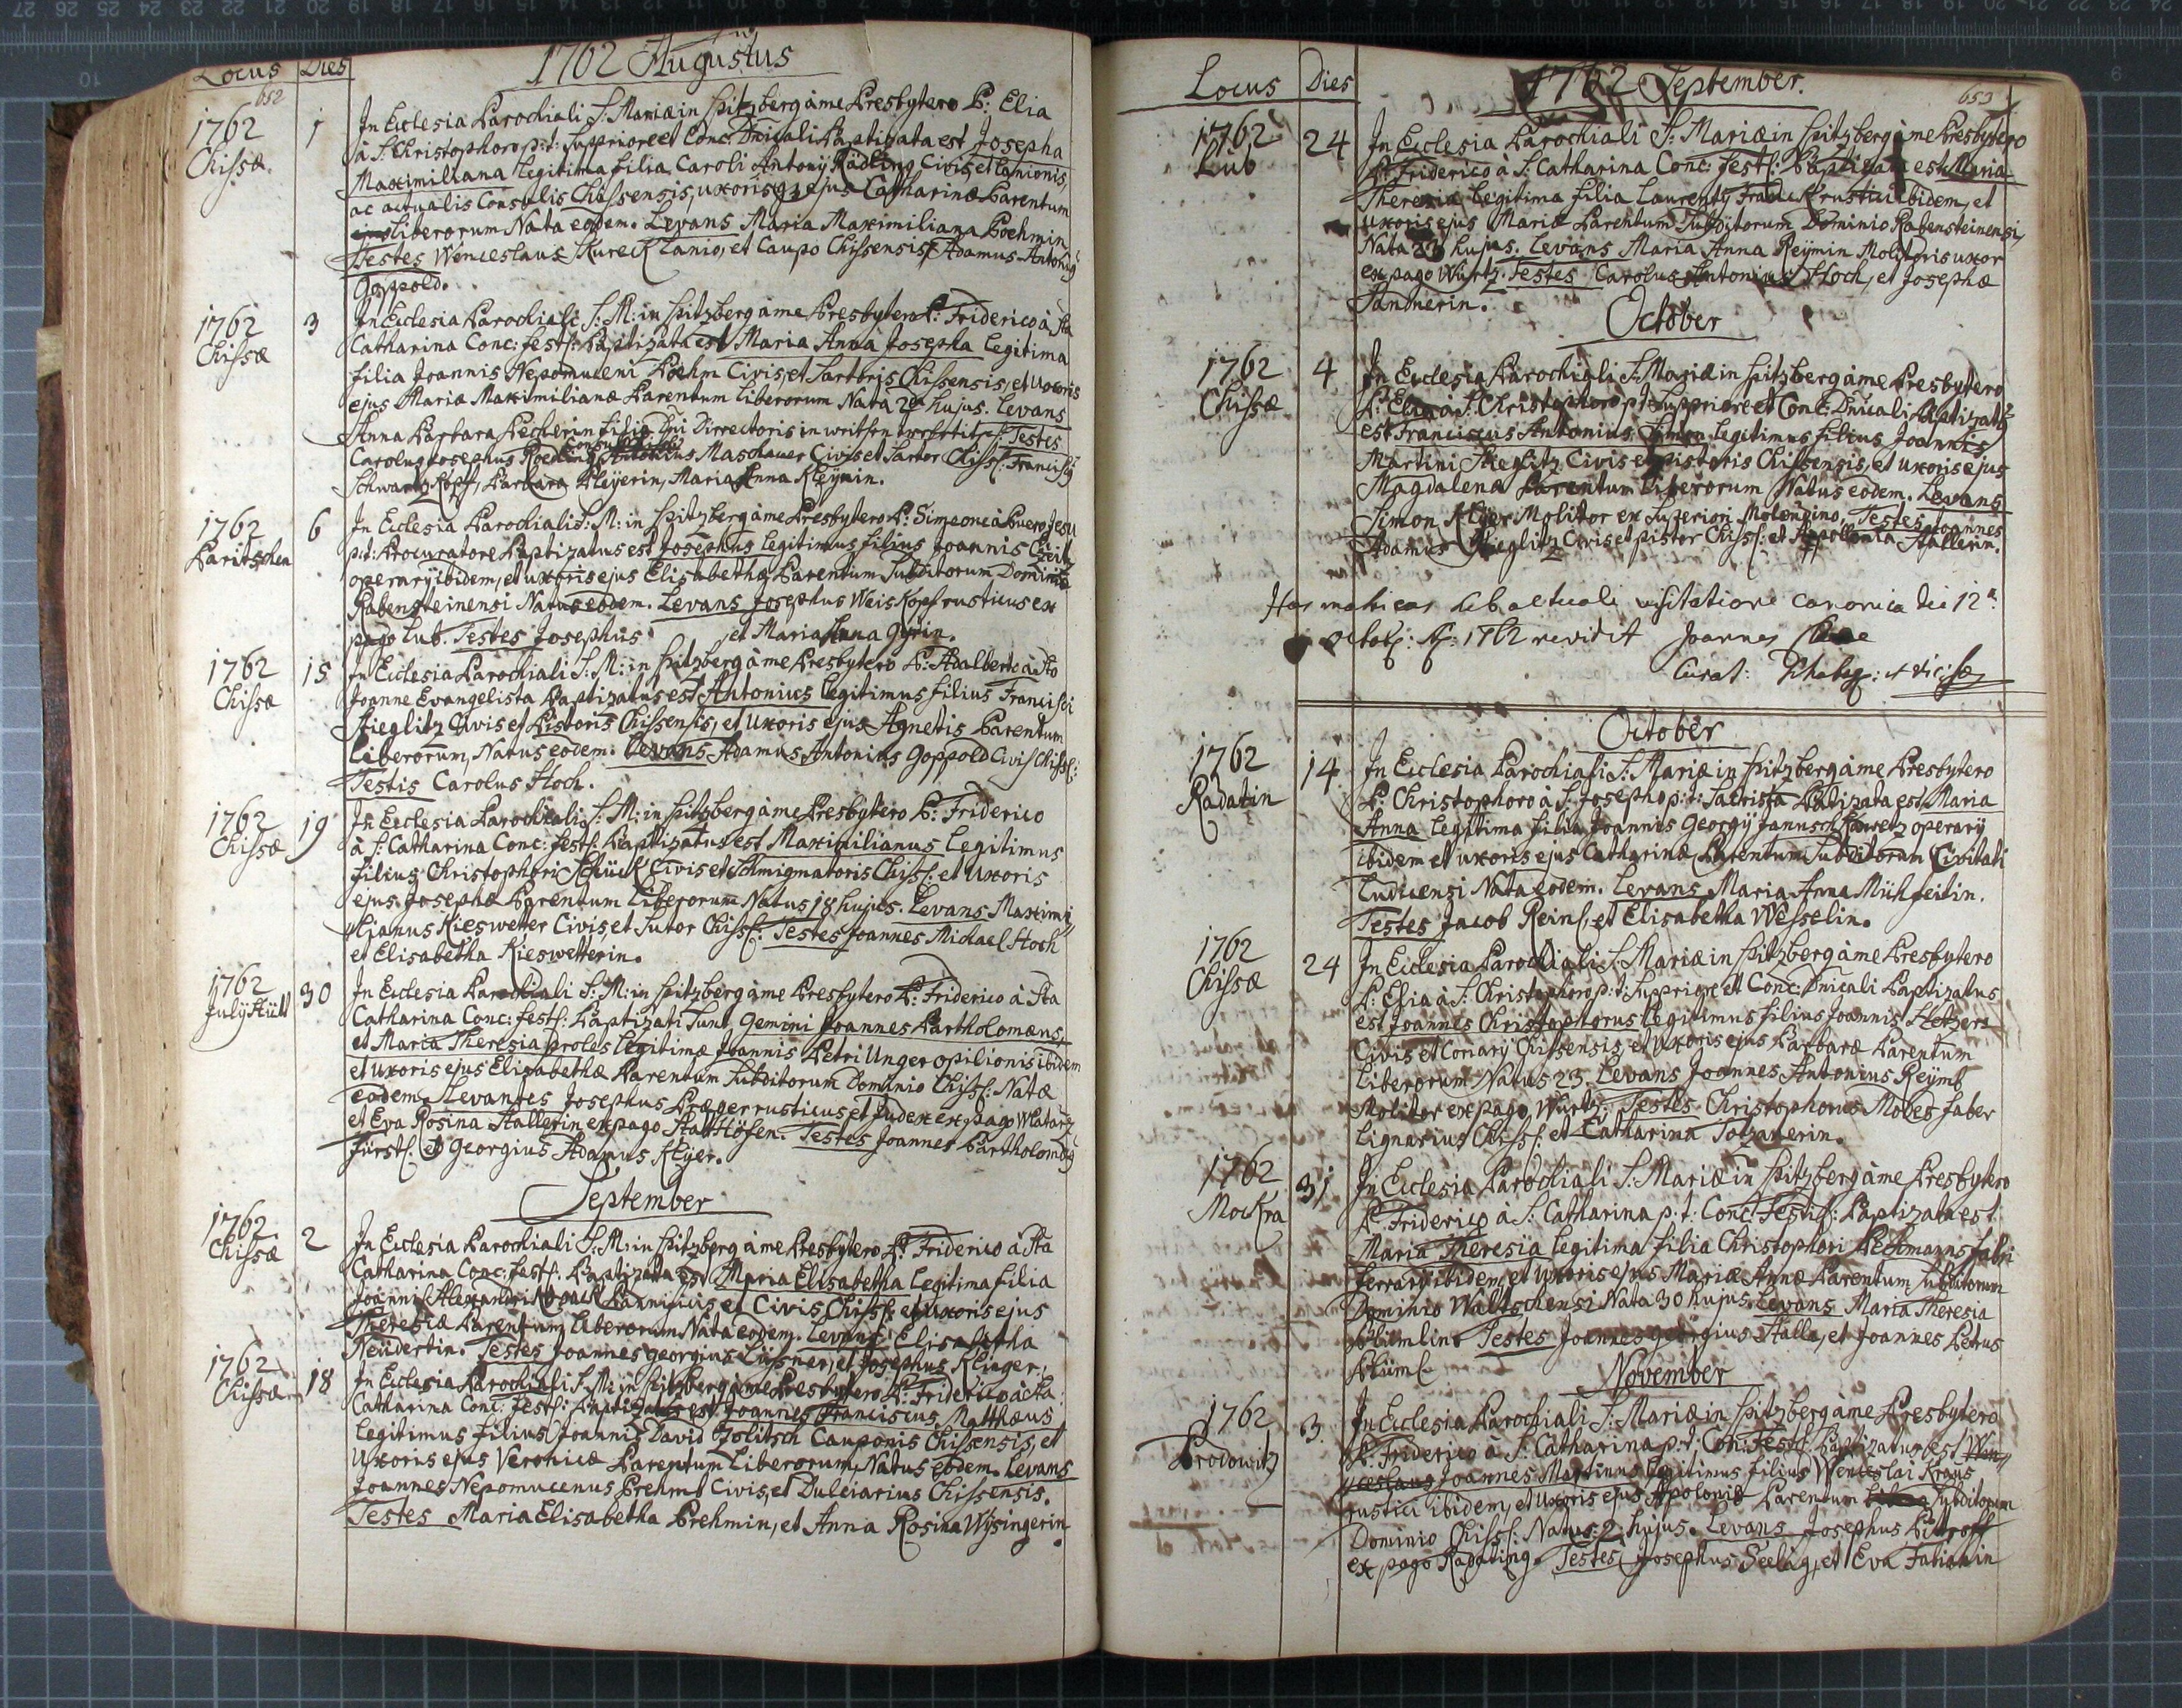 Locus Dies 1762 Augustus
652
1762 Chissæ 1 In Ecclesia Parochiali S: Mariæ in Spitzberg à me Presbytero P: Elia
à S: Christophoro p:t: Suppriore et Conc: Dnicali Baptizata est Josepha
Maximiliana legitima filia Caroli Antonÿ Civis et Lanionis,
ac actualis Consulis Chissensis, uxorisq; ejus Catharinæ Parentum
Liberorum Nata eodem. Levans Maria Maximiliana Boehmin
Testes Wenceslaus Skureck Lanio, et Caupo Chissensis, Adamus Antonius
Goppold.
1762 Chissæ 3 In Ecclesia Parochiali S: M: in Spitzberg à me Presbytero P: Friderico à Sta
Catharina Conc: fest: Baptizata est Maria Anna Josepha legitima
filia Joannis Nepomuceni Boehm Civis, et Sartoris Chissensis, et Uxoris
ejus Mariæ Maximilianæ Parentum Liberorum Nata 2da hujus. Levans
Anna Barbara filia Dni Dirrectoris in Testes
Carolus Josephus Antonius Maschauer Civis et Sartor Chiss: Franciscus
Schwartz Kopf, Barbara Kleÿerin, Maria Anna Kleÿnin.
1762 Paritschen 6 In Ecclesia Parochiali S: M: in Spitzberg à me Presbytero P: Simeone à Puero Jesu
p:t: Procuratore Baptizatus est Josephus legitimus filius Joannis
operarÿ ibidem, et uxoris ejus Elisabethæ Parentum Subditorum Dominio
Rabensteinensi Natus eodem. Levans Josephus WeisKopf rusticus ex
pago Lub. Testes Josephus et Maria Anna Gÿrin.
1762 Chissæ 15 In Ecclesia Parochiali S: M: in Spitzberg à me Presbytero P: Adalberto à Sto
Joanne Evangelista Baptizatus est Antonius legitimus filius Francisci
Stieglitz Civis et Pistoris Chissensis, et Uxoris ejus Agnetis Parentum
Liberorum, Natus eodem. Levans Adamus Antonius Goppold Civis Chiss:
Testis Carolus Hoch.
1762 Chissæ 19 In Ecclesia Parochiali S: M: in Spitzberg à me Presbytero P: Friderico
à S: Catharina Conc: fest: Baptizatus est Maximilianus legitimus
filius Christophori Schück Civis et Schmigmatoris Chiss: et Uxoris
ejus Josephæ Parentum Liberorum Natus 18 hujus. Levans Maximi
lianus Kieswetter Civis, et Sutor Chiss: Testes Joannes Michael Hoch
et Elisabetha Kieswetterin.
1762 Julÿ Hütt 30 In Ecclesia Parochiali S: M: in Spitzberg à me Presbytero P: Friderico à Sta
Catharina Conc: fest: Baptizati Sunt Gemini Joannes Bartholomæus,
et Maria Theresia proles legitimæ Joannis Petri Unger opilionis ibidem
et uxoris ejus Elisabethæ Parentum Subditorum Dominio Chiss: Natæ
eodem. Levantes Josephus Præger rusticus, et Judex ex pago
et Eva Rosina Stallerin ex pago StattHöfen. Testes Joannes Bartholomæus
Fürst: et Georgius Adamus Kleÿer.
September
1762 Chissæ 2 In Ecclesia Parochiali S: M: in Spitzberg à me Presbytero P: Friderico à Sta
Catharina Conc: fest: Baptizata est Maria Elisabetha legitima filia
Joannis Alexandri Pannificis, et Civis Chiss: et uxoris ejus
Theresiæ Parentum Liberorum Nata eodem. Levans Elisabetha
Neüdertin. Testes Joannes georgius Lüssner, et Josephus Klinger.
1762 Chissæ 18 In Ecclesia Parochiali S: M: in Spitzberg à me Presbytero P: Friderico à Sta
Catharina Conc: fest: Baptizatus est Joannes Franciscus Matthæus
legitimus filius Joannis David Tolitsch Cauponis Chissensis, et
Uxoris ejus Veronicæ Parentum Liberorum, Natus eodem. Levans
Joannes Nepomucenus Prehm Civis, et Dulciarius Chissensis.
Testes Maria Elisabetha Prehmin, et Anna Rosina Wÿsingerin.
Locus Dies 1762 September.
653
1762 Lub 24 In Ecclesia Parochiali S: Mariæ in Spitzberg à me Presbytero
P: Friderico à S: Catharina Conc: fest: Baptizata est Maria
Theresia legitima filia Laurentÿ rustici ibidem, et
uxoris ejus Mariæ Parentum Subditorum Dominio Rabensteinensi,
Nata 23 hujus. Levans Maria Anna Reÿmin Molitoris uxor
ex pago Würtz. Testes Carolus Antonius Hoch, et Josepha
October
1762 Chissæ 4 In Ecclesia Parochiali S: Mariæ in Spitzberg à me Presbytero
P: Elia à S: Christophoro p:t: Suppriore et Conc: Dnicali Baptizatus
est Franciscus Antonius Simon legitimus filius Joannis
Martini Stieglitz Civis et pistoris Chissensis, et uxoris ejus
Magdalena Parentum Liberorum Natus eodem. Levans
Simon Kleÿer Molitor ex Superiori Molendino. Testes Joannes
Adamus Stieglitz Civis et pistor Chiss: et Appollonia Stallerin.
Has matricas sub actuali visitatione canonica die 12a
octob: A: 1762 revidit Joannes
Curat:
October
1762 Radatin 14 In Ecclesia Parochiali S: Mariæ in Spitzberg à me Presbytero
P: Christophoro à S: Josepho p:t: Sacrista Batizata est Maria
Anna legitima filia Joannis Georgÿ operarÿ
ibidem et uxoris ejus Catharinæ Parentum Subditorum Civitati
Ludicensi Nata eodem. Levans Maria Anna Mühfeitin.
Testes Jacob Reins, et Elisabetha Wesselin.
1762 Chissæ 24 In Ecclesia Parochiali S: Mariæ in Spitzberg à me Presbytero
P: Elia à S: Christophoro p:t: Suppriore et Conc: Dnicali Baptizatus
est Joannes Christophorus legitimus filius Joannis
Civis et Coriarÿ Chissensis, et uxoris ejus Barbaræ Parentum
Liberorum Natus 23. Levans Joannes Antonius Reÿm
Molitor ex pago Würtz. Testes Christophorus Moses faber
lignarius Chiss: et Catharina Totzauerin.
1762 Mockra 31 In Ecclesia Parochiali S: Mariæ in Spitzberg à me Presbytero
P: Friderico à S: Catharina p:t: Conc: Festif: Baptizata est
Maria Theresia legitima filia Christophori fabri
ferrarÿ ibidem, et uxoris ejus Mariæ Annæ Parentum Subditorum
Dominio Waltschensi Nata 30 hujus. Levans Maria Theresia
Blümlin. Testes Joannes georgius Stalla, et Joannes Petrus
Blüml
November
1762 Brodowitz 3 In Ecclesia Parochiali S: Mariæ in Spitzberg à me Presbytero
P: Friderico à S: Catharina p:t: Con: Fest: Baptizatus est Wen
ceslaus Joannes Martinus legitimus filius Wenceslai Kraus
rustici ibidem, et Uxoris ejus Apoloniæ Parentum Subditorum
Dominio Chiss: Natus 2 hujus. Levans Josephus
ex pago Radating. Testes Josephus Seelig, et Eva Fabianin